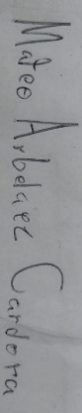 Mateo Arbelaez Cardona